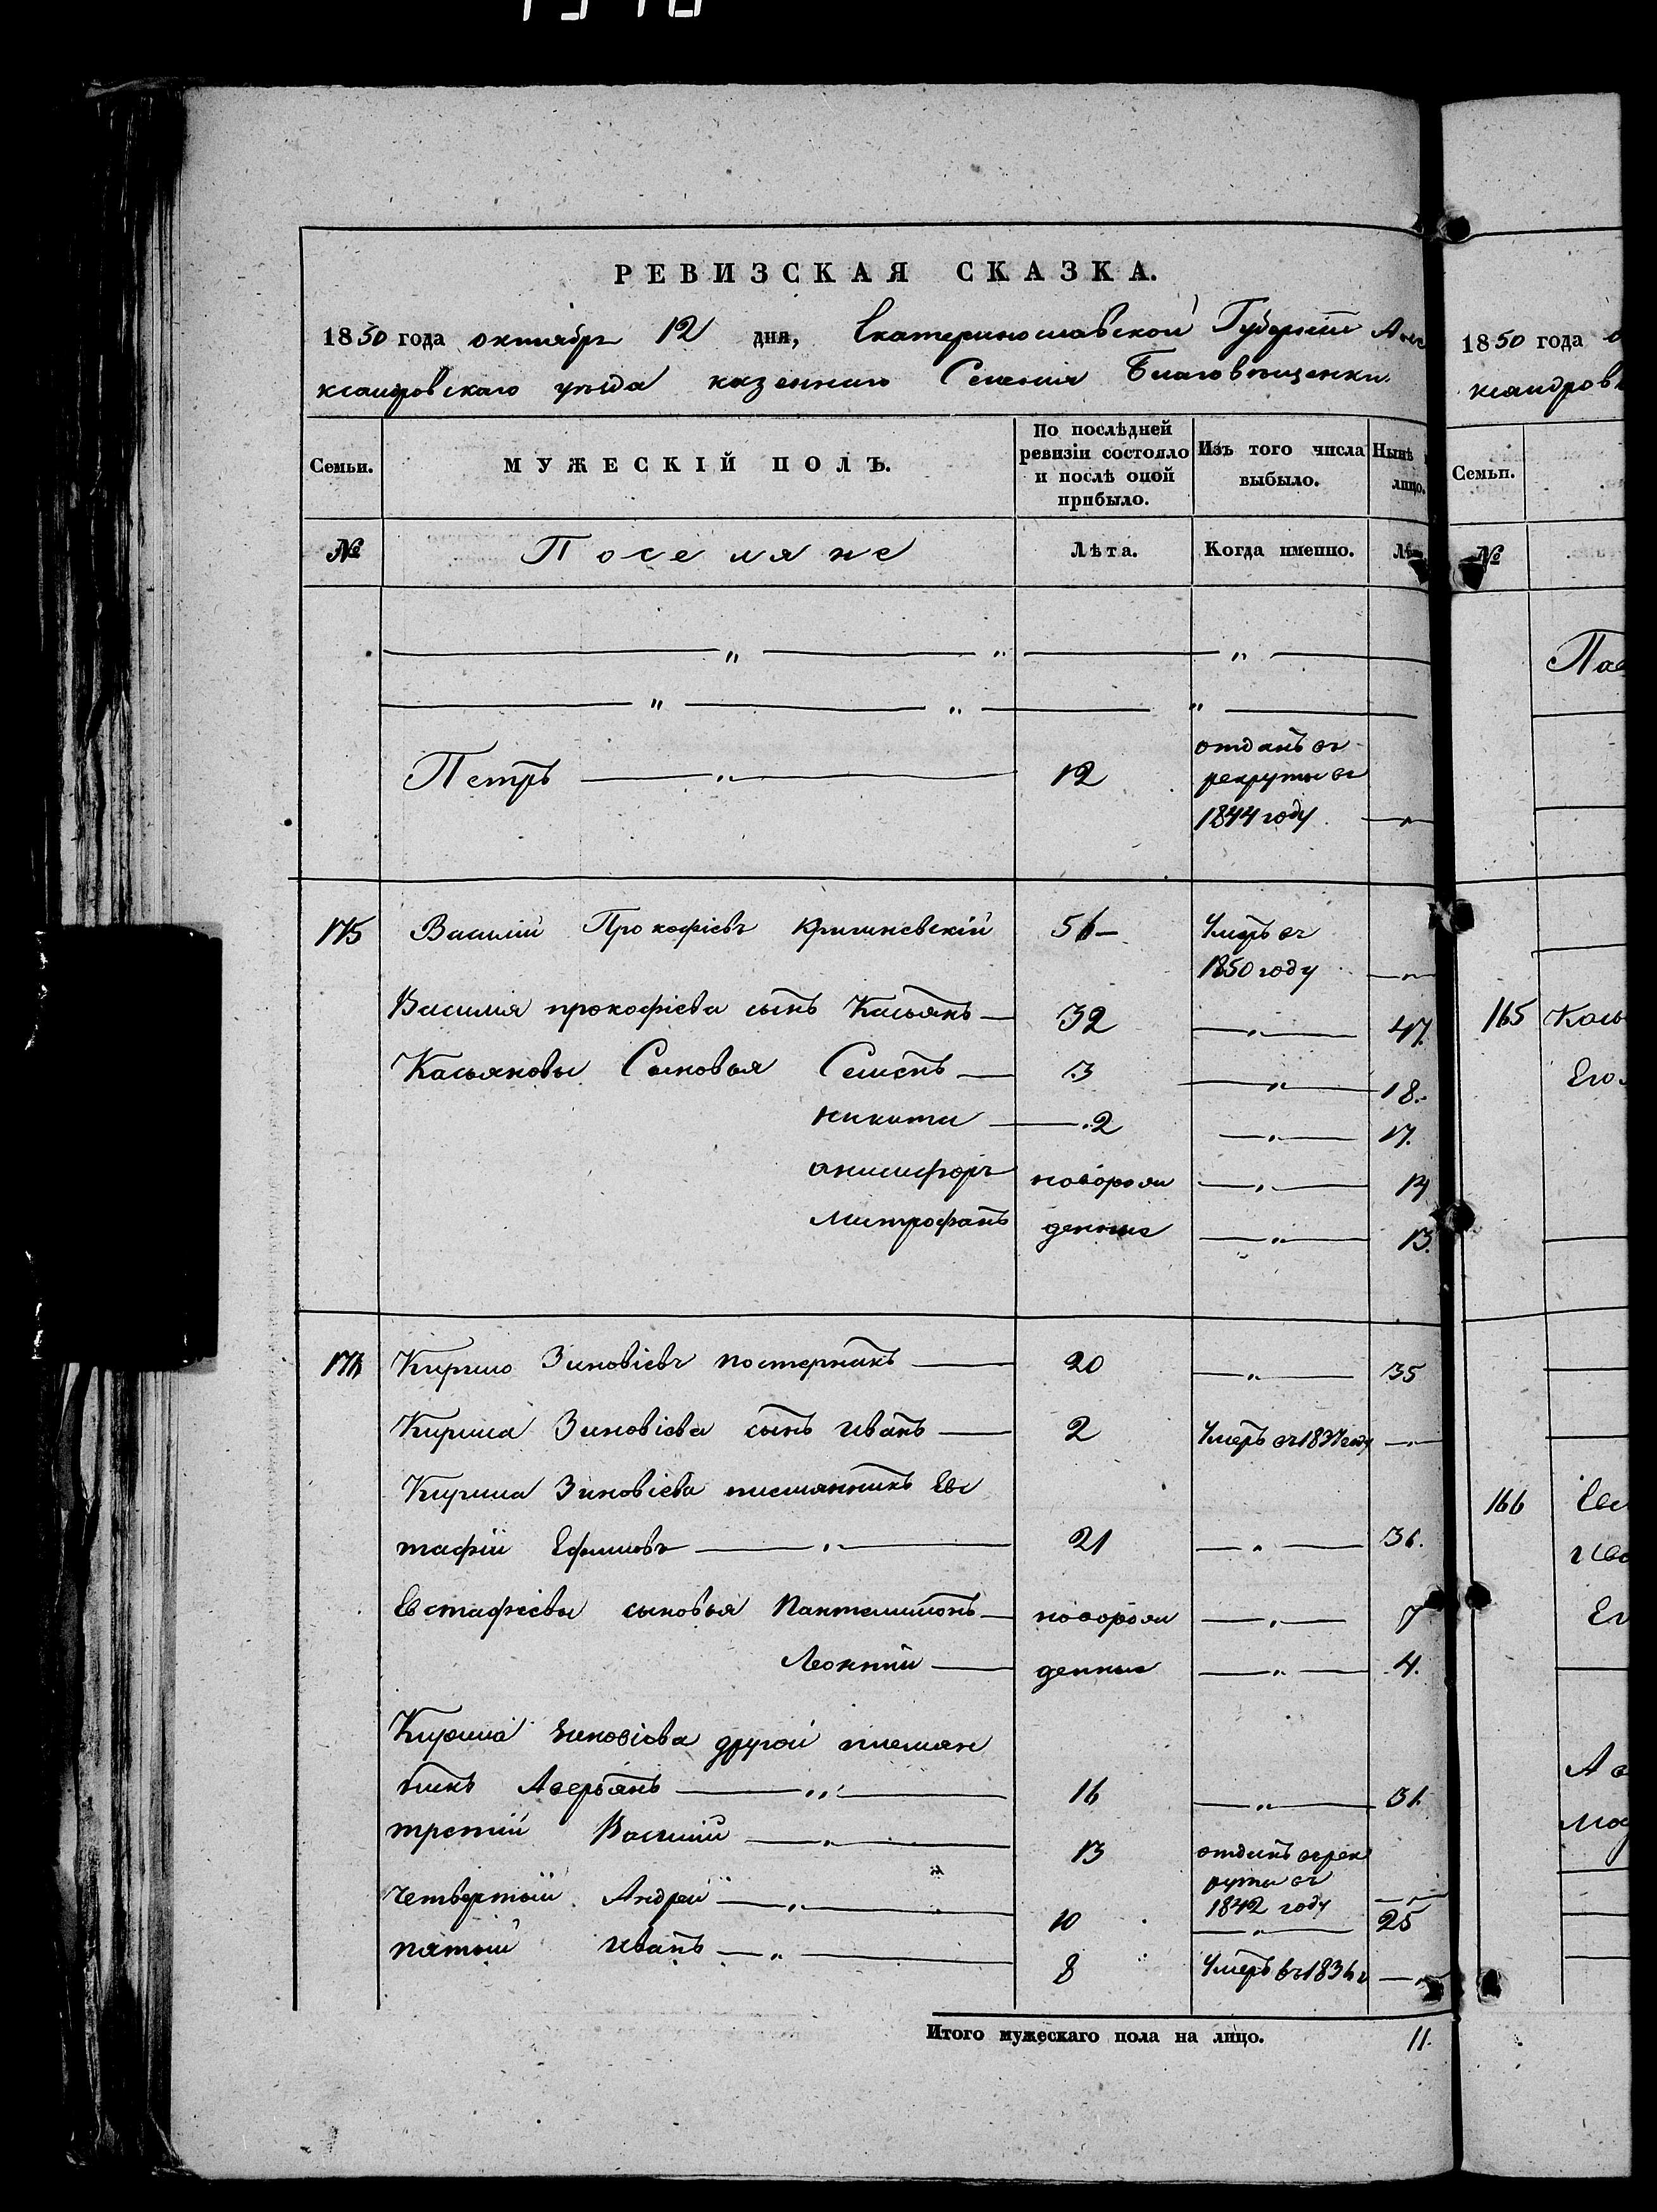 РЕВИЗСКАЯ СКАЗКА.
1850 года октября 12 дня, Екатеринославской Губернии Але
ксандровскаго уѣзда казеннаго Селенія Благовѣщенки
Семьи. МУЖЕСКІЙ ПОЛЪ. По послѣдней ревизіи состояло и послѣ оной прибыло. Изъ того числа выбыло. Нынѣ лицо.
№ Поселяне Лѣта. Когда именно.
— „ — „ — „ —
— „ — „ — „ —
Петръ — „ — 12 отданъ въ
рекруты въ
1844 году — „ —
175 Василій Прокофіевъ 56 — Умеръ въ
1850 году — „ —
Василія прокофіева сынъ Касьянъ — 32 — „ — 47.
Касьяновы Сыновья Семенъ — 3 — „ — 18.
никита — 2 — „ — 17.
анисифоръ новорож — „ — 14
Митрофанъ денные — „ — 13.
176 Кирило Зиновіевъ постернакъ — 20 — „ — 35
Кирила Зиновіева сынъ иванъ — 2 Умеръ въ 1837 году — „ —
Кирила Зиновіева племянникъ Евс
тафій Ефимовъ — „ — 21 — „ — 36.
Евстафіевы сыновья Пантелимонъ — новорож — „ — 7
Леонтий — денные — „ — 4.
Кирила Зиновіева другой племян
никъ Аверьянъ — „ — 16 — „ — 31
третій Василий — „ — 13 отданъ въ рек
руты въ
1842 году — „ —
четвертый Андрей — „ — 10 — „ — 25
пятый иванъ — „ — 8 Умеръ въ 1836 г — „ —
Итого мужескаго пола на лицо. 11.
1850 года
ксандров
Семьи.
№
165
166